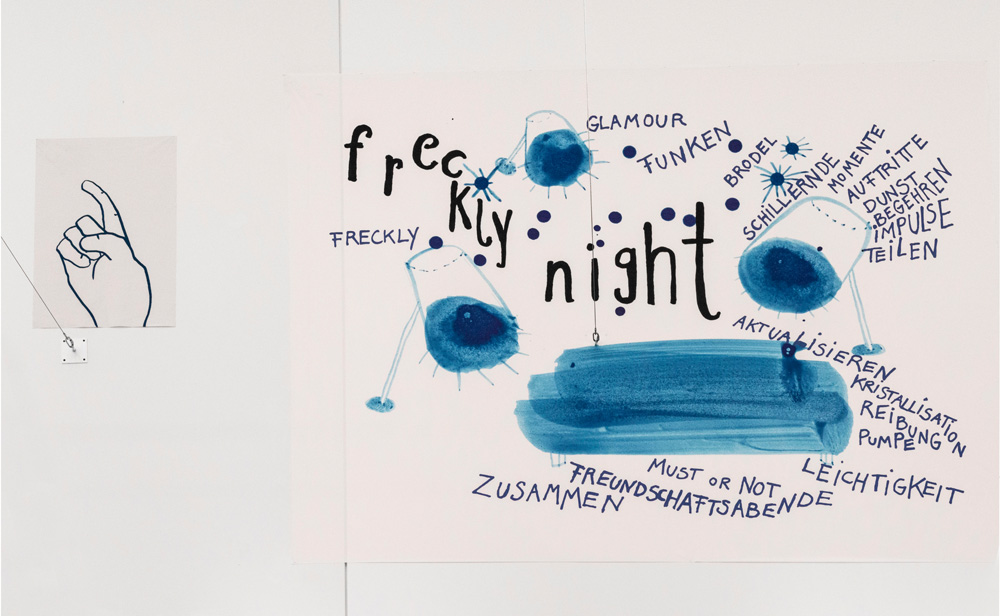 frec
kly
night
FRECKLY
GLAMOUR
FUNKEN
BRODEL
SCHILLERNDE
MOMENTE
AUFTRITTE
DUNST
BEGEHREN
IMPULSE
TEILEN
AKTUALISIEREN
KRISTALLISATION
REIBUNG
PUMPEN
LEICHTIGKEIT
MUST OR NOT
FREUNDSCHAFTSABENDE
ZUSAMMEN